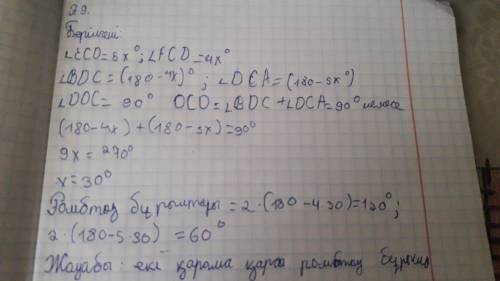 29.
Берілгені:
∠ECD=5x°; ∠FCD=4x°
∠BDC=(180-4x)°; ∠DCA=(180-5x°)
∠DOC= 90° OCD=∠BDC+∠DCA=90° немесе
(180-4x)+(180-5x)=90°
9x=270°
x=30°
Ромбтың бұрыштары=2·(180-4·30)=120°;
2·(180-5·30) =60°
Жауабы: екі қарама қарсы ромбтың бұрышы